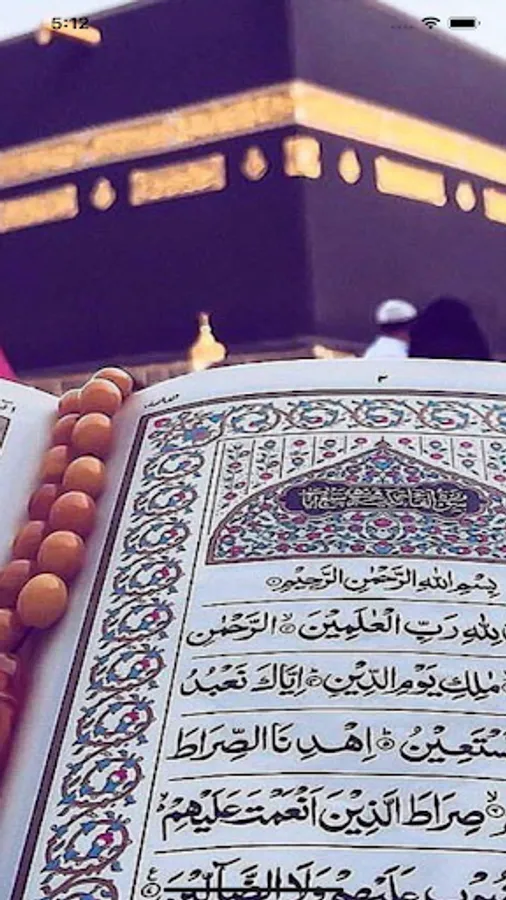 5:12
٢
بِسْمِ اللهِ الرَّحْمٰنِ الرَّحِيْمِ
لِلّٰهِ رَبِّ الْعٰلَمِيْنَ الرَّحْمٰنِ
مٰلِكِ يَوْمِ الدِّيْنِ اِيَّاكَ نَعْبُدُ
سْتَعِيْنُ اِهْدِ نَا الصِّرَاطَ
صِرَاطَ الَّذِيْنَ اَنْعَمْتَ عَلَيْهِمْ
عَلَيْهِمْ وَلَا الضَّآلِّيْنَ